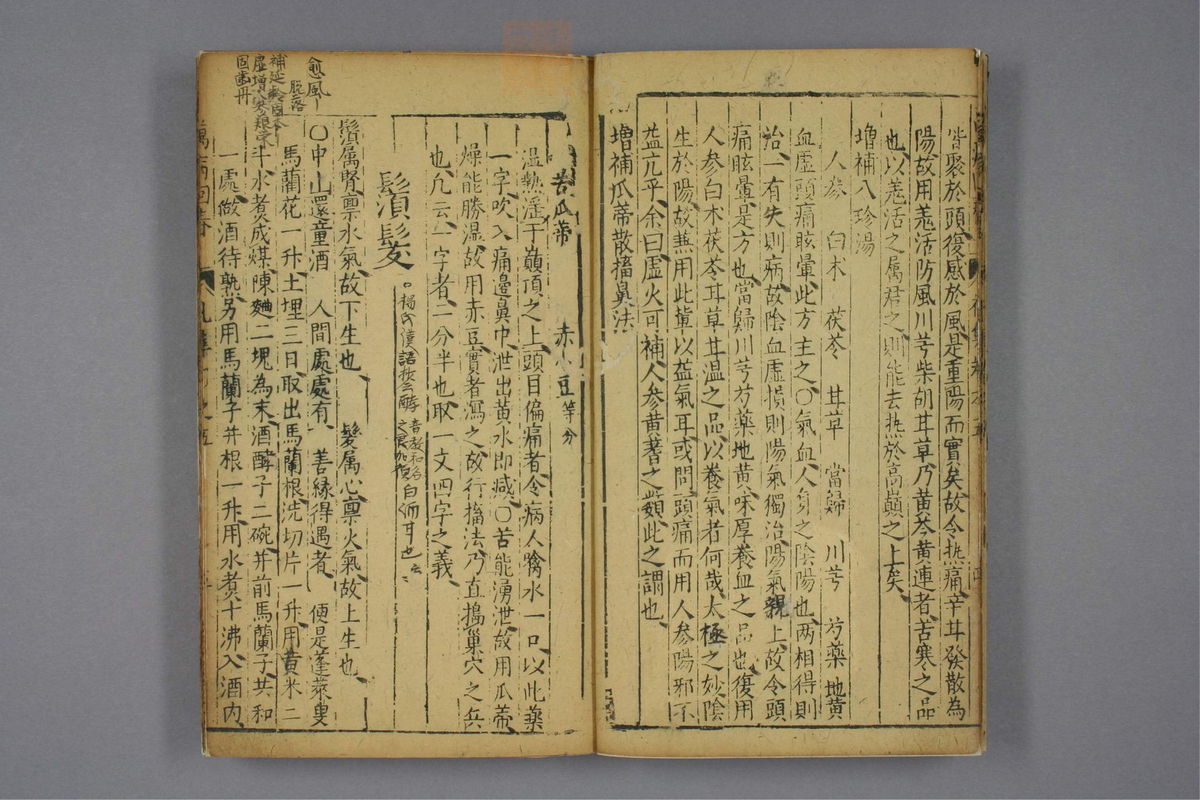 皆聚於頭復感於風是重陽而實矣故令熱痛辛甘發散為
陽故用羗活防風川芎柴胡甘草乃黃芩黃連者苦寒之品
也以羗活之属君之則能去热於高巔之上矣
增補八珍湯
人參 白木 茯苓 甘草 當歸 川芎 芍藥 地黃
血虛頭痛眩暈此方主之〇氣血人身之陰陽也两相得則
治一有失則病故陰血虛損則陽氣獨治陽氣親上故令頭
痛眩暈是方也當歸川芎芍藥地黃味厚養血之品也復用
人參白木茯苓甘草甘温之品以養氣者何哉太極之妙陰
生於陽故兼用此冀以益氣耳或問頭痛而用人參陽邪不
益亢乎余曰虛火可補人參黃蓍之類此之謂也
增補瓜蒂散搐鼻法
苦瓜蒂 赤小豆等分
温熱淫于巔頂之上頭目偏痛者令病人噙水一口以此藥
一字吹入痛邊鼻中泄出黃水即减〇苦能湧泄故用瓜蒂
燥能勝温故用赤豆實者瀉之故行搐法乃直搗巢穴之兵
也凢云一字者一分半也取一文四字之義
鬚髮
楊氏漢語 酵 白 耳也
鬚属腎禀水氣故下生也 髮属心禀火氣故上生也
〇中山還童酒 人間處處有 善緣得遇者 便是蓬萊叟
馬蘭花一升土埋三日取出馬蘭根洗切片一升用黃米二
斗水煮成煤陳麯二塊為末酒酵子二碗并前馬蘭子共和
一處做酒待熟另用馬蘭子并根一升用水煮十沸入酒内
愈風
脫落
補延
固齒丹